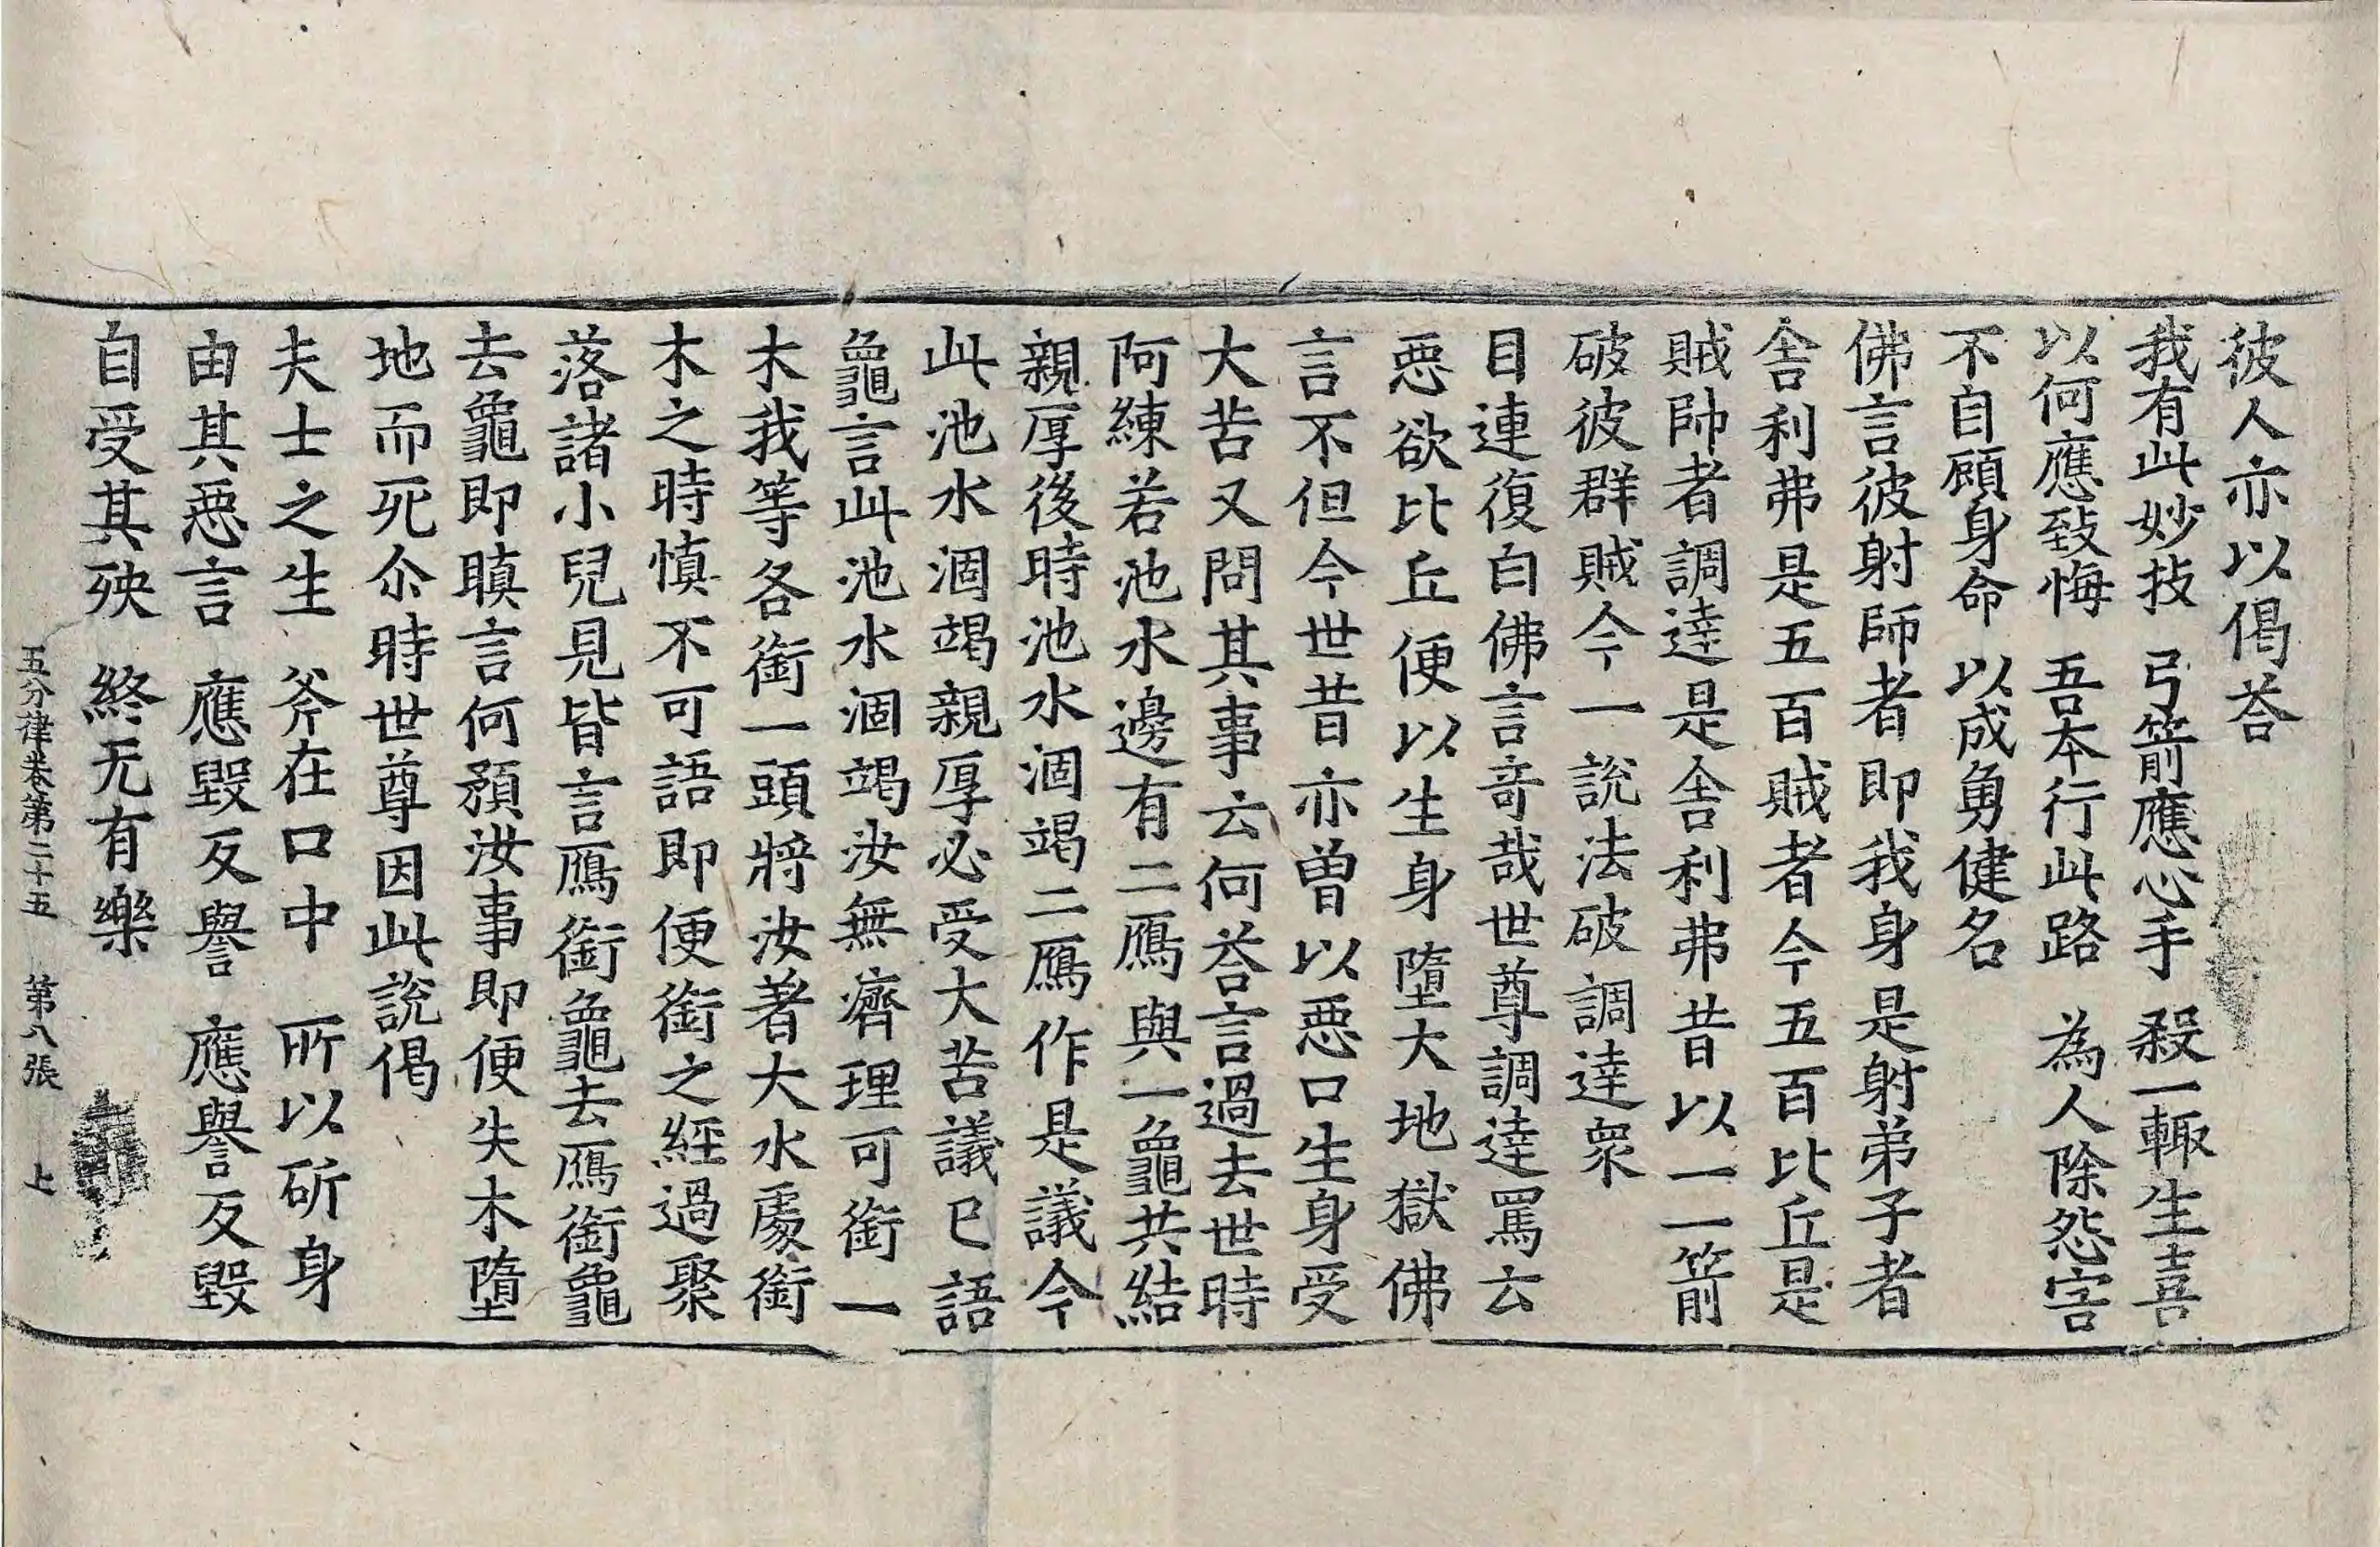 彼人亦以偈荅
我有此妙技　弓箭應心手　殺一輙生喜
以何應致悔　吾本行此路　為人除怨害
不自顧身命　以成勇健名
佛言彼射師者即我身是射弟子者
舍利弗是五百賊者今五百比丘是
賊帥者調達是舍利弗昔以一一箭
破彼群賊今一說法破調達衆
目連復白佛言奇哉世尊調達罵云
惡欲比丘便以生身墮大地獄佛
言不但今世昔亦曽以惡口生身受
大苦又問其事云何荅言過去世時
阿練若池水邊有二鴈與一龜共結
親厚後時池水涸竭二鴈作是議今
此池水涸竭親厚必受大苦議已語
龜言此池水涸竭汝無濟理可銜一
木我等各銜一頭將汝著大水處銜
木之時慎不可語即便銜之經過聚
落諸小兒見皆言鴈銜龜去鴈銜龜
去龜即瞋言何預汝事即便失木墮
地而死尒時世尊因此說偈
夫士之生　斧在口中　所以斫身
由其惡言　應毀反譽　應譽反毀
自受其殃　終无有樂
五分律卷第二十五　第八張　上